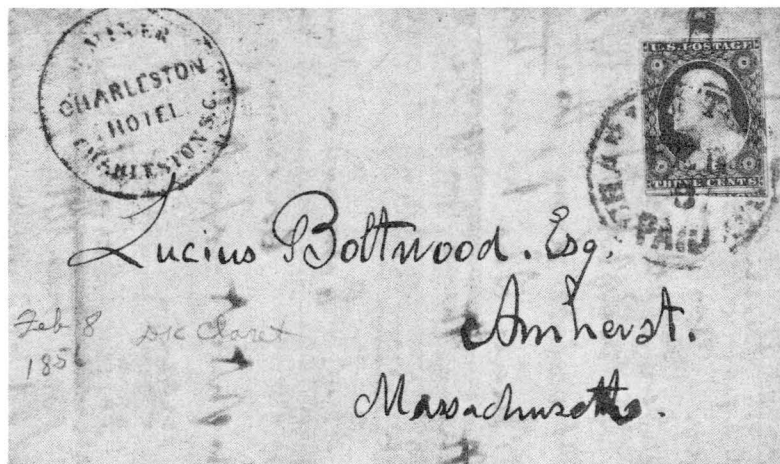 CHARLESTON
HOTEL
CHARLESTON S.C.
U.S. POSTAGE
THREE CENTS
PAID
Lucius Boltwood. Esq.
Amherst.
Massachusetts.
Feb 8
185
dk Claret